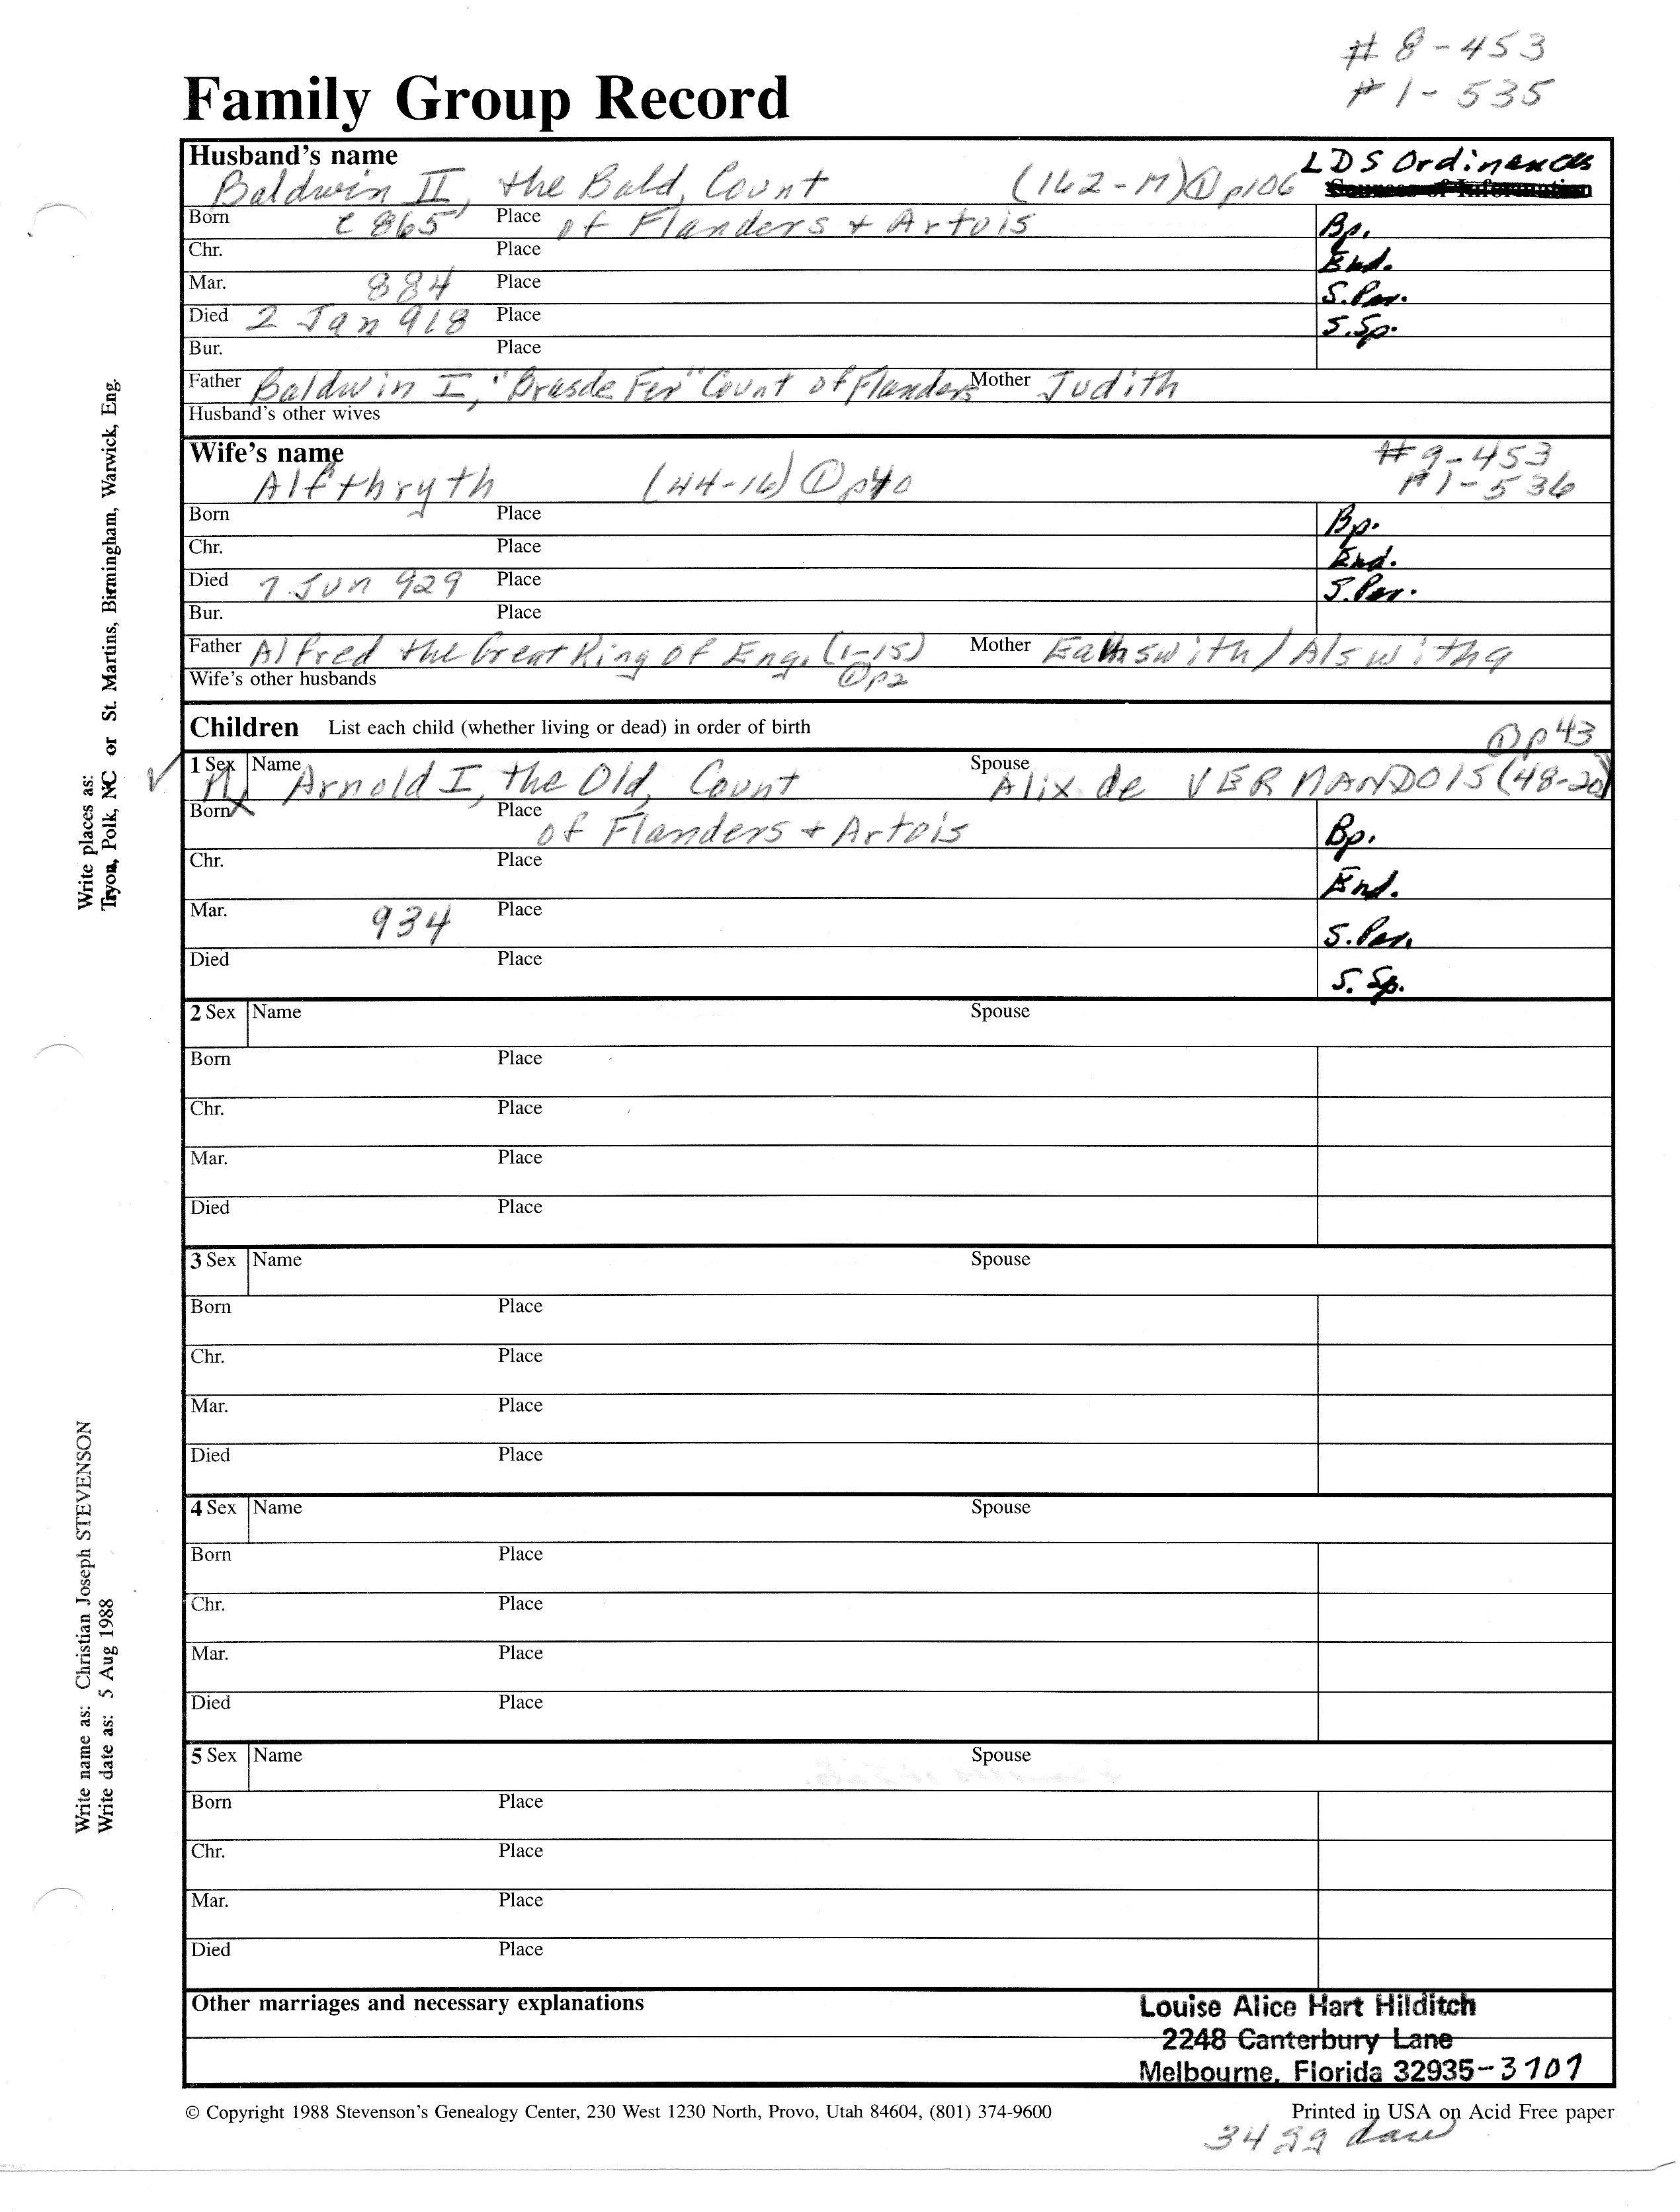 # 8-453
# 1-535
Family Group Record
Husband's name
LDS Ordinances
Baldwin II, the Bald, Count (162-17) ① p106
Born c 865 Place of Flanders + Artois Bp.
Chr. Place End.
Mar. 884 Place S.Par.
Died 2 Jan 918 Place S.Sp.
Bur. Place
Father Baldwin I, "Brasde Fer" Count of Flanders Mother Judith
Husband's other wives
Wife's name #9-453
Alfthryth (44-16) ① p40 #1-536
Born Place Bp.
Chr. Place End.
Died 7 Jun 929 Place S.Par.
Bur. Place
Father Alfred the Great King of Eng. (1-15) Mother Eahswith/Alswitha
Wife's other husbands ① p2
Children List each child (whether living or dead) in order of birth ① p43
1 Sex Name Spouse
M Arnold I, the Old, Count Alix de VERMANDOIS (48-20)
Born Place of Flanders + Artois Bp.
Chr. Place End.
Mar. 934 Place S.Par.
Died Place S.Sp.
2 Sex Name Spouse
Born Place
Chr. Place
Mar. Place
Died Place
3 Sex Name Spouse
Born Place
Chr. Place
Mar. Place
Died Place
4 Sex Name Spouse
Born Place
Chr. Place
Mar. Place
Died Place
5 Sex Name Spouse
Born Place
Chr. Place
Mar. Place
Died Place
Other marriages and necessary explanations
Louise Alice Hart Hilditch
2248 Canterbury Lane
Melbourne, Florida 32935-3707
© Copyright 1988 Stevenson's Genealogy Center, 230 West 1230 North, Provo, Utah 84604, (801) 374-9600 Printed in USA on Acid Free paper
34 gg
Write places as:
Tryon, Polk, NC or St. Martins, Birmingham, Warwick, Eng.
Write name as: Christian Joseph STEVENSON
Write date as: 5 Aug 1988